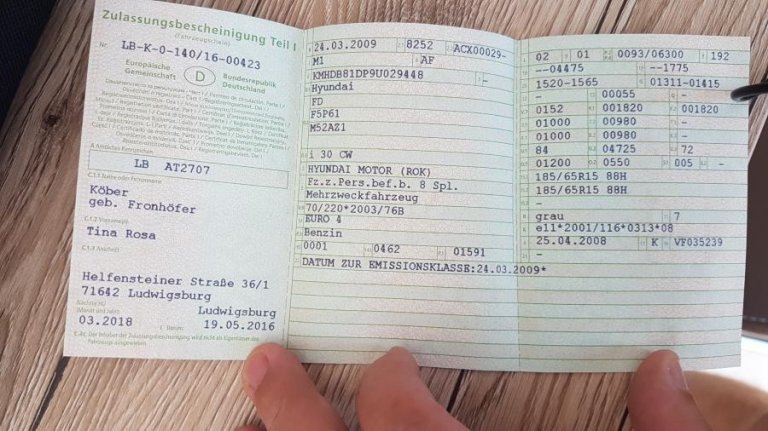 Zulassungsbescheinigung Teil I
(Fahrzeugschein)
Nr. LB-K-0-140/16-00423
Europäische Gemeinschaft
D
Bundesrepublik Deutschland
A Amtliches Kennzeichen
LB AT2707
C.1.1 Name oder Firmenname
Köber
geb. Fronhöfer
C.1.2 Vorname(n)
Tina Rosa
C.1.3 Anschrift
Helfensteiner Straße 36/1
71642 Ludwigsburg
Nächste HU
(Monat und Jahr)
Ludwigsburg
03.2018
Datum: 19.05.2016
C.4c Der Inhaber der Zulassungsbescheinigung wird nicht als Eigentümer des
Fahrzeugs ausgewiesen.
24.03.2009 8252 ACX00029-
M1 AF
KMHDB81DP9U029448 -
Hyundai
FD
F5P61
M52AZ1
i 30 CW
HYUNDAI MOTOR (ROK)
Fz.z.Pers.bef.b. 8 Spl.
Mehrzweckfahrzeug
70/220*2003/76B
EURO 4
Benzin
0001 0462 01591
DATUM ZUR EMISSIONSKLASSE:24.03.2009*
02 01 0093/06300 192
--04475 --1775
1520-1565 01311-01415
- 00055 -
0152 001820 001820
01000 00980 -
01000 00980 -
84 04725 72
01200 0550 005 -
185/65R15 88H
185/65R15 88H
-
grau 7
e11*2001/116*0313*08
25.04.2008 K VF035239
-